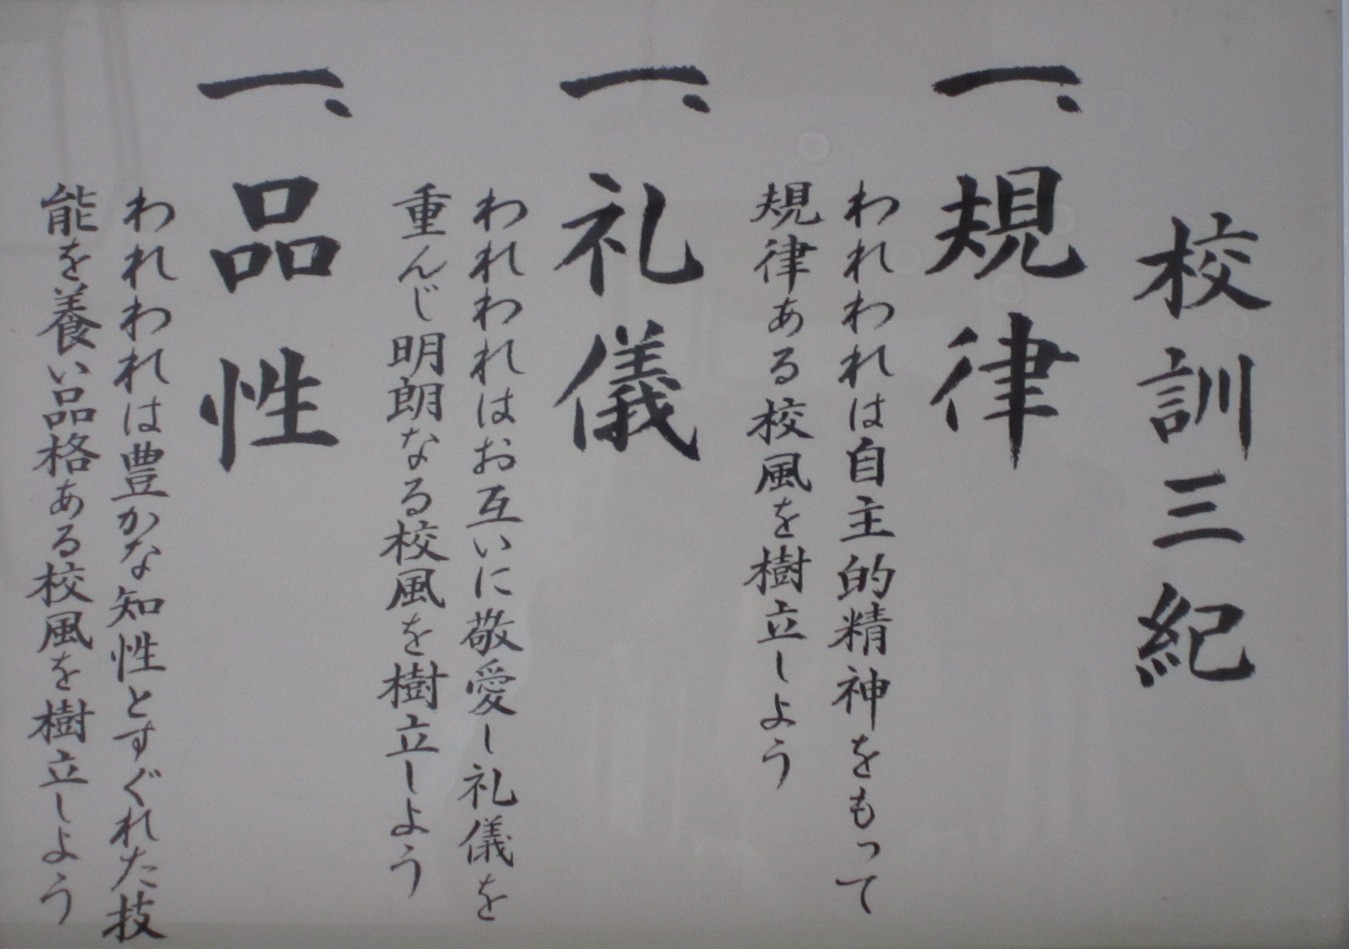 校訓三紀
一、規律
われわれは自主的精神をもって
規律ある校風を樹立しよう
一、礼儀
われわれはお互いに敬愛し礼儀を
重んじ明朗なる校風を樹立しよう
一、品性
われわれは豊かな知性とすぐれた技
能を養い品格ある校風を樹立しよう